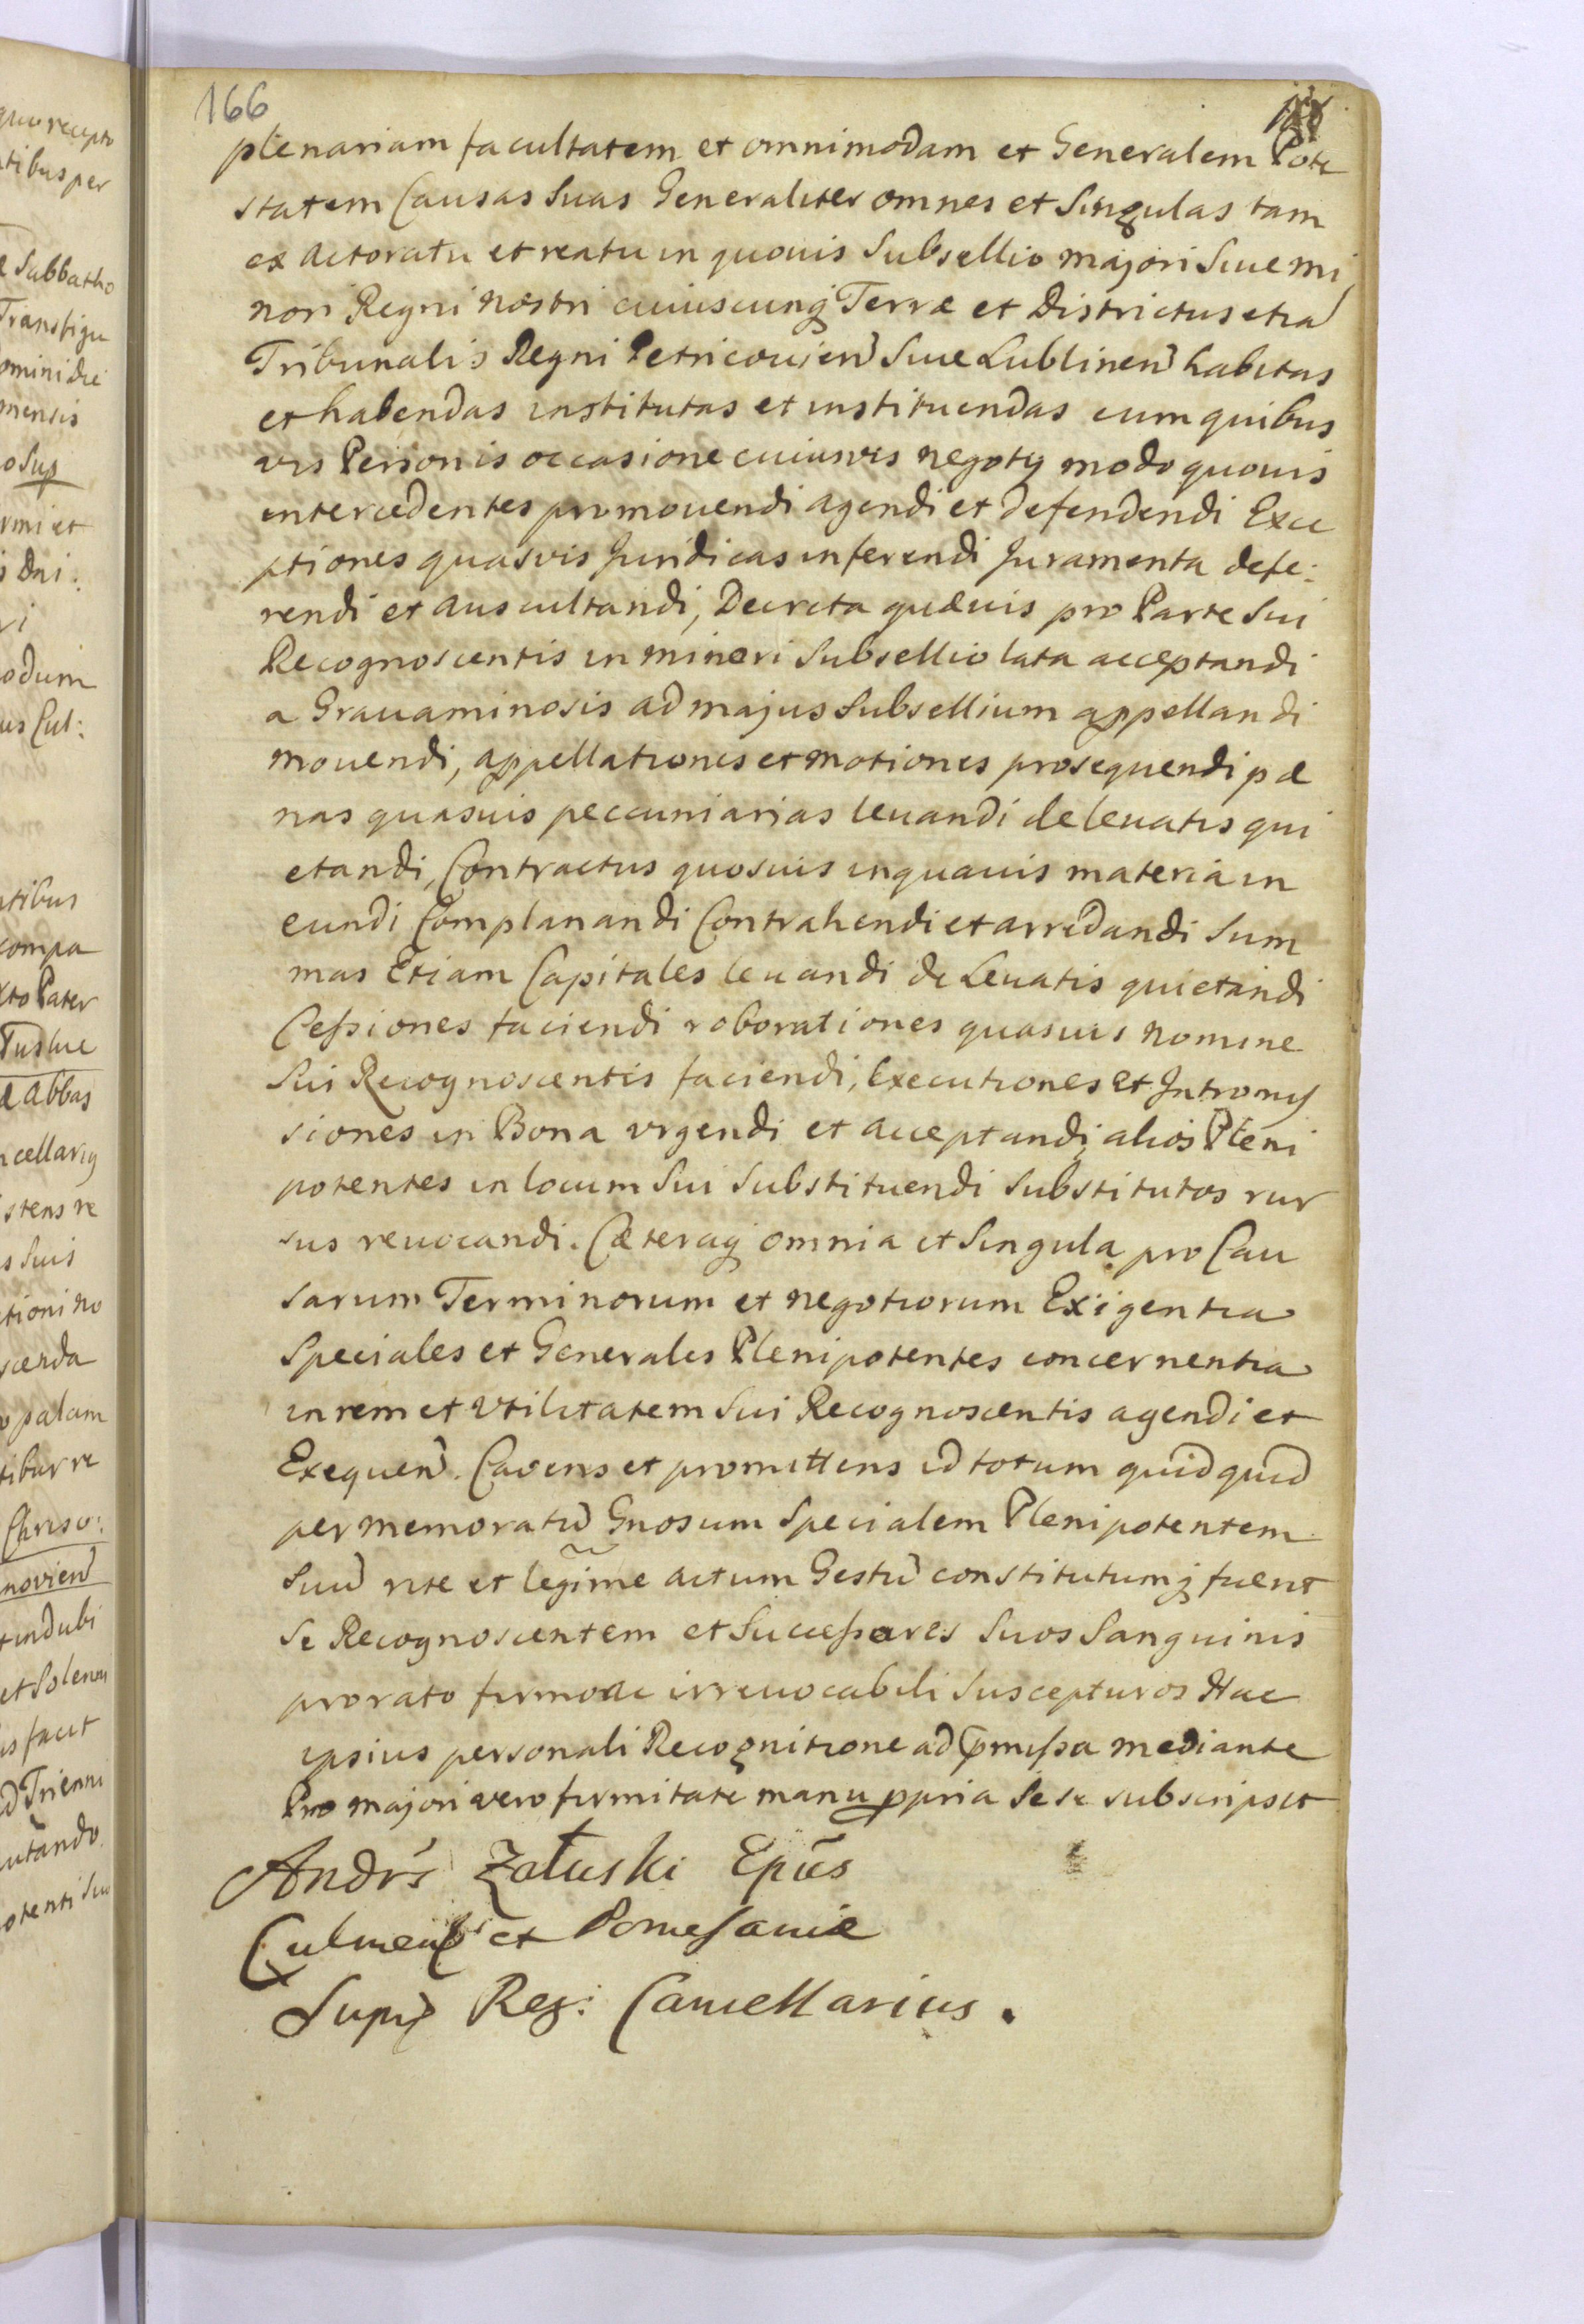 166
plenariam facultatem et omnimodam et Generalem Pote
statem Causas Suas Generaliter omnes et Singulas tam
ex actoratu et reatu in quouis Subsellio majori Siue mi
nori Regni nostri cuiuscunq Terræ et Districtus etia
Tribunalis Regni Petricouien Siue Lublinen habitas
et habendas institutas et instituendas cum quibus
vis Personis occasione cuiusvis negotij modo quouis
intercedentes promouendi agendi et defendendi Exce
ptiones quasvis Juridicas inferendi Juramenta defe:
rendi et auscultandi, Decreta quæuis pro Parte Sui
Recognoscentis in minori Subsellio lata acceptandi
a Grauaminosis ad majus Subsellium appellandi
mouendi, appellationes et motiones prosequendi pæ
nas quasuis peccuniarias leuandi de leuatis qui
etandi, Contractus quosuis inquauis materia in
eundi Complanandi Contrahendi et arredandi Sum
mas Etiam Capitales leuandi de Leuatis quietandi
Cessiones faciendi roborationes quasuis nomine
Sui Recognoscentis faciendi, Executiones et Intromis
siones in Bona vrgendi et acceptandi, alios Pleni
potentes in locum Sui Substituendi Substitutos rur
sus reuocandi. Cæteraq omnia et Singula pro Cau
sarum Terminorum et negotiorum Exigentia
Speciales et Generales Plenipotentes concernentia
in rem et vtilitatem Sui Recognoscentis agendi et
Exequen. Cavens et promittens id totum quidquid
per memoratu Gnosum Specialem Plenipotentem
Suu rite et legime actum Gestu constitutumq fuerit
Se Recognoscentem et Successores Suos Sanguinis
pro rato firmo ac irreuocabili Suscepturos Hac
ipsius personali Recognitione ad pmissa mediante
Pro majori vero firmitate manu ppria Se se subscripsit
Andrs Załuski Epūs
Culmens et Pomesaniæ
Supr Reg: Cancellarius.